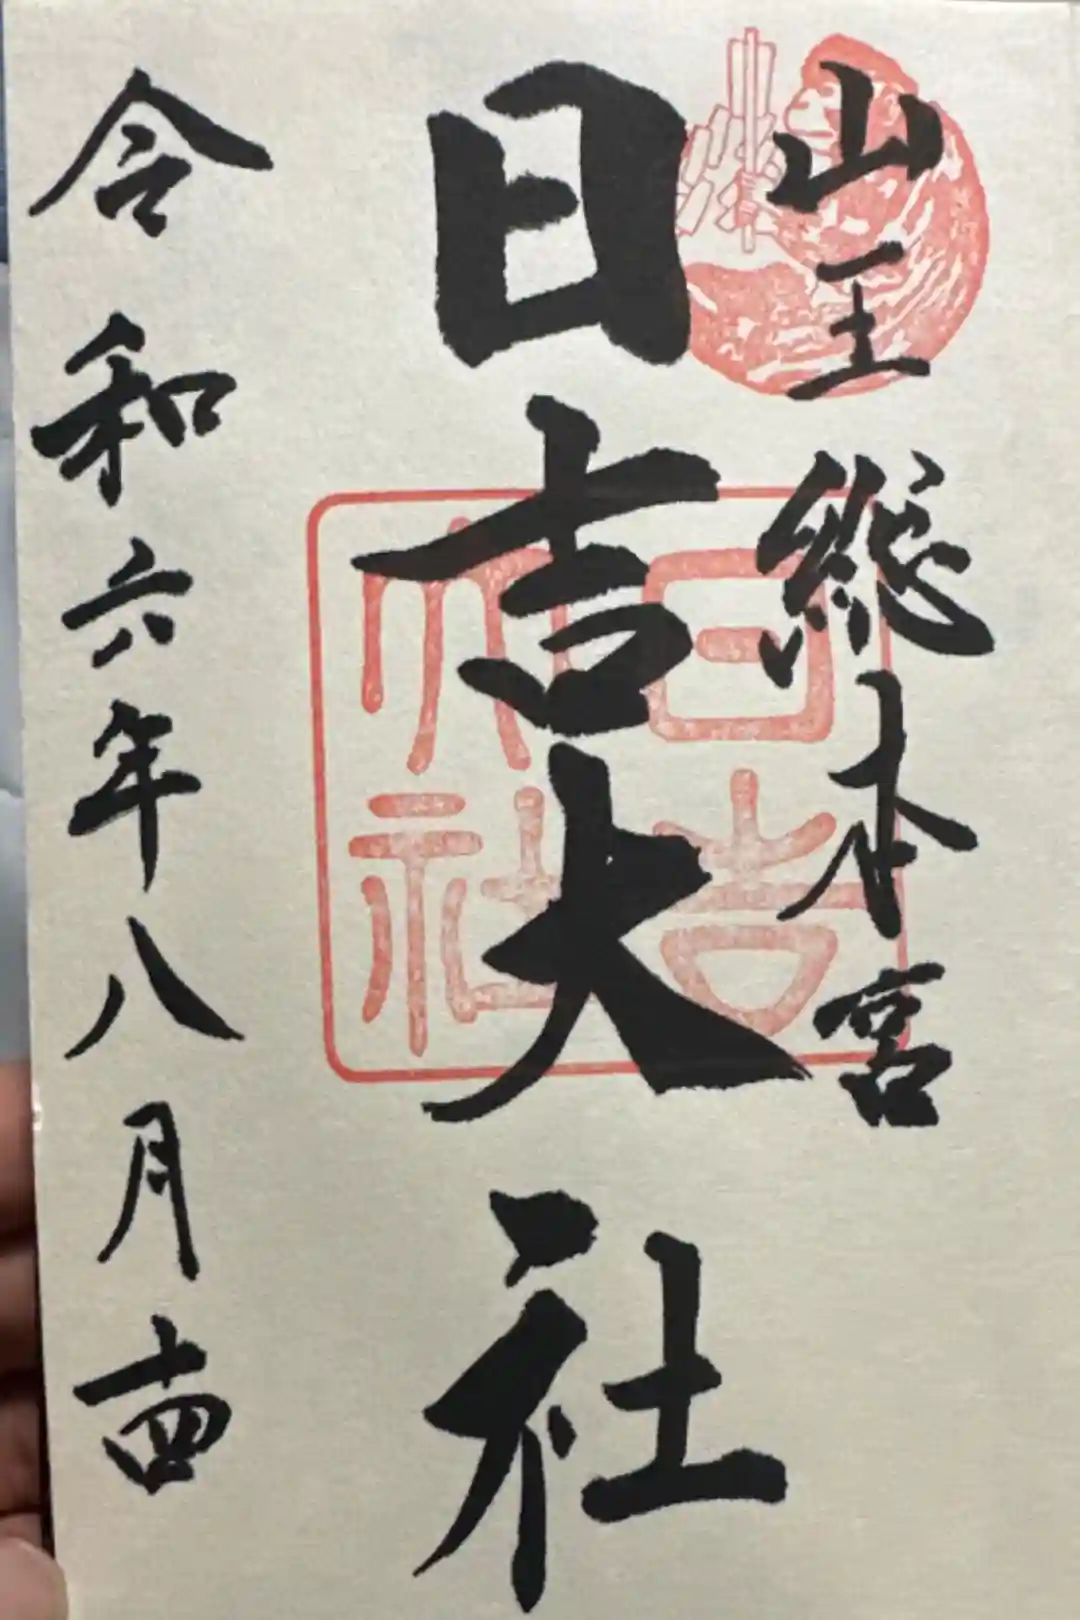 山王総本宮
日吉大社
日吉大社
令和六年八月十四